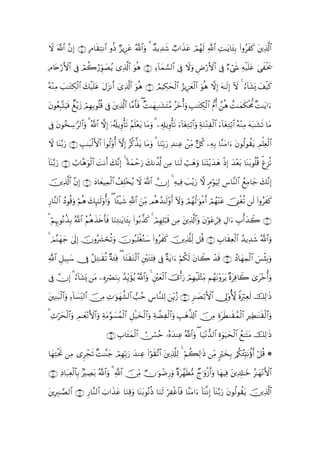 ٱلَّذِينَ كَفَرُوا۟ بِـَٔايَـٰتِ ٱللَّهِ لَهُمْ عَذَابٌ شَدِيدٌ ۗ وَٱللَّهُ عَزِيزٌ ذُو ٱنتِقَامٍ ﴿٤﴾ إِنَّ ٱللَّهَ لَا
يَخْفَىٰ عَلَيْهِ شَىْءٌ فِى ٱلْأَرْضِ وَلَا فِى ٱلسَّمَآءِ ﴿٥﴾ هُوَ ٱلَّذِى يُصَوِّرُكُمْ فِى ٱلْأَرْحَامِ
كَيْفَ يَشَآءُ ۚ لَآ إِلَـٰهَ إِلَّا هُوَ ٱلْعَزِيزُ ٱلْحَكِيمُ ﴿٦﴾ هُوَ ٱلَّذِىٓ أَنزَلَ عَلَيْكَ ٱلْكِتَـٰبَ مِنْهُ
ءَايَـٰتٌ مُّحْكَمَـٰتٌ هُنَّ أُمُّ ٱلْكِتَـٰبِ وَأُخَرُ مُتَشَـٰبِهَـٰتٌ ۖ فَأَمَّا ٱلَّذِينَ فِى قُلُوبِهِمْ زَيْغٌ فَيَتَّبِعُونَ
مَا تَشَـٰبَهَ مِنْهُ ٱبْتِغَآءَ ٱلْفِتْنَةِ وَٱبْتِغَآءَ تَأْوِيلِهِۦ ۗ وَمَا يَعْلَمُ تَأْوِيلَهُۥٓ إِلَّا ٱللَّهُ ۗ وَٱلرَّٰسِخُونَ فِى
ٱلْعِلْمِ يَقُولُونَ ءَامَنَّا بِهِۦ كُلٌّ مِّنْ عِندِ رَبِّنَا ۗ وَمَا يَذَّكَّرُ إِلَّآ أُو۟لُوا۟ ٱلْأَلْبَـٰبِ ﴿٧﴾ رَبَّنَا لَا
تُزِغْ قُلُوبَنَا بَعْدَ إِذْ هَدَيْتَنَا وَهَبْ لَنَا مِن لَّدُنكَ رَحْمَةً ۚ إِنَّكَ أَنتَ ٱلْوَهَّابُ ﴿٨﴾ رَبَّنَآ
إِنَّكَ جَامِعُ ٱلنَّاسِ لِيَوْمٍ لَّا رَيْبَ فِيهِ ۚ إِنَّ ٱللَّهَ لَا يُخْلِفُ ٱلْمِيعَادَ ﴿٩﴾ إِنَّ ٱلَّذِينَ
كَفَرُوا۟ لَن تُغْنِىَ عَنْهُمْ أَمْوَٰلُهُمْ وَلَآ أَوْلَـٰدُهُم مِّنَ ٱللَّهِ شَيْـًٔا ۖ وَأُو۟لَـٰٓئِكَ هُمْ وَقُودُ ٱلنَّارِ
﴿١٠﴾ كَدَأْبِ ءَالِ فِرْعَوْنَ وَٱلَّذِينَ مِن قَبْلِهِمْ ۚ كَذَّبُوا۟ بِـَٔايَـٰتِنَا فَأَخَذَهُمُ ٱللَّهُ بِذُنُوبِهِمْ ۗ
وَٱللَّهُ شَدِيدُ ٱلْعِقَابِ ﴿١١﴾ قُل لِّلَّذِينَ كَفَرُوا۟ سَتُغْلَبُونَ وَتُحْشَرُونَ إِلَىٰ جَهَنَّمَ ۚ
وَبِئْسَ ٱلْمِهَادُ ﴿١٢﴾ قَدْ كَانَ لَكُمْ ءَايَةٌ فِى فِئَتَيْنِ ٱلْتَقَتَا ۖ فِئَةٌ تُقَـٰتِلُ فِى سَبِيلِ ٱللَّهِ
وَأُخْرَىٰ كَافِرَةٌ يَرَوْنَهُم مِّثْلَيْهِمْ رَأْىَ ٱلْعَيْنِ ۚ وَٱللَّهُ يُؤَيِّدُ بِنَصْرِهِۦ مَن يَشَآءُ ۗ إِنَّ فِى
ذَٰلِكَ لَعِبْرَةً لِّأُو۟لِى ٱلْأَبْصَـٰرِ ﴿١٣﴾ زُيِّنَ لِلنَّاسِ حُبُّ ٱلشَّهَوَٰتِ مِنَ ٱلنِّسَآءِ وَٱلْبَنِينَ
وَٱلْقَنَـٰطِيرِ ٱلْمُقَنطَرَةِ مِنَ ٱلذَّهَبِ وَٱلْفِضَّةِ وَٱلْخَيْلِ ٱلْمُسَوَّمَةِ وَٱلْأَنْعَـٰمِ وَٱلْحَرْثِ ۗ
ذَٰلِكَ مَتَـٰعُ ٱلْحَيَوٰةِ ٱلدُّنْيَا ۖ وَٱللَّهُ عِندَهُۥ حُسْنُ ٱلْمَـَٔابِ ﴿١٤﴾
۞ قُلْ أَؤُنَبِّئُكُم بِخَيْرٍ مِّن ذَٰلِكُمْ ۚ لِلَّذِينَ ٱتَّقَوْا۟ عِندَ رَبِّهِمْ جَنَّـٰتٌ تَجْرِى مِن تَحْتِهَا
ٱلْأَنْهَـٰرُ خَـٰلِدِينَ فِيهَا وَأَزْوَٰجٌ مُّطَهَّرَةٌ وَرِضْوَٰنٌ مِّنَ ٱللَّهِ ۗ وَٱللَّهُ بَصِيرٌۢ بِٱلْعِبَادِ ﴿١٥﴾
ٱلَّذِينَ يَقُولُونَ رَبَّنَآ إِنَّنَآ ءَامَنَّا فَٱغْفِرْ لَنَا ذُنُوبَنَا وَقِنَا عَذَابَ ٱلنَّارِ ﴿١٦﴾ ٱلصَّـٰبِرِينَ